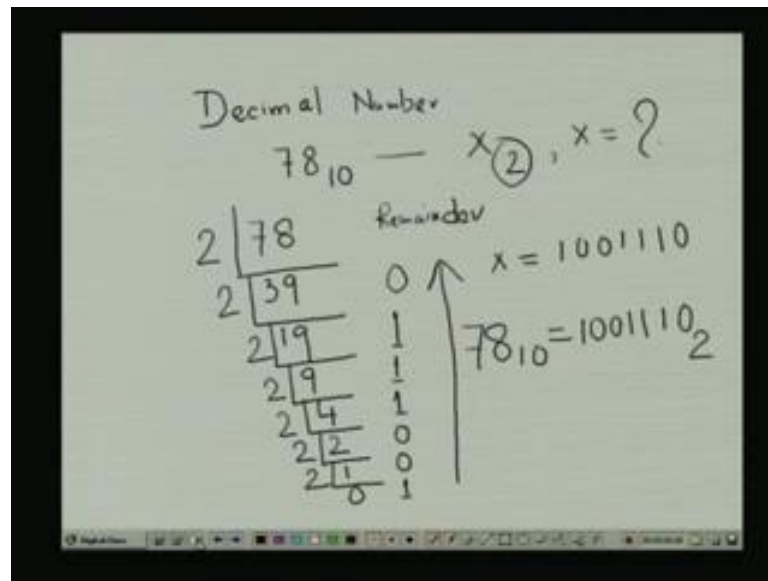 Decimal Number
78₁₀ — x₂, x = ?
2 | 78 Remainder
2 | 39 0
2 | 19 1
2 | 9 1
2 | 4 1
2 | 2 0
2 | 1 0
0 1
x = 1001110
78₁₀ = 1001110₂